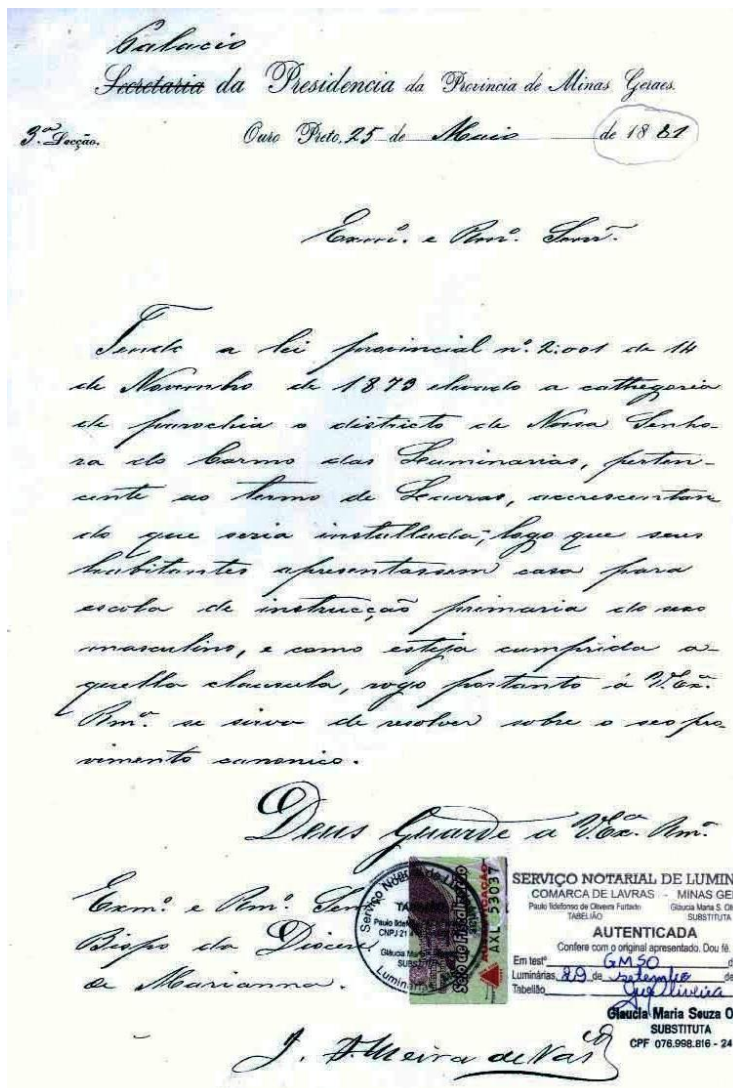 Palacio
Secretaria da Presidencia da Provincia de Minas Geraes.
3ª Secção. Ouro Preto, 25 de Maio de 1881
Exmº. e Rmº. Senr.
Tendo a lei provincial nº. 2:001 de 14
de Novembro de 1873 elevado a cathegoria
de parochia o districto de Nossa Senho-
ra do Carmo das Luminarias, perten-
cente ao termo de Lavras, accrescentan
do que seria installada, logo que seus
habitantes apresentassem casa para
escola de instrucção primaria do sexo
masculino, e como esteja cumprida a-
quella clausula, rogo portanto á V. Exª.
Rmª. se sirva de resolver sobre o seo pro-
vimento canonico.
Deus Guarde a V. Exª. Rmª.
Exmº. e Rmº. Sen
Bispo da Dioces
de Marianna.
J. F. Meira de Vas
TA
Paulo Ildef
CNPJ 21
Glaucia Mar
SUBS
Luminári
AUTENTICAÇÃO
AXL 53037
SERVIÇO NOTARIAL DE LUMIN
COMARCA DE LAVRAS - MINAS GE
Paulo Ildefonso de Oliveira Furtado Gláucia Maria S. Oli
TABELIÃO SUBSTITUTA
AUTENTICADA
Confere com o original apresentado. Dou fé.
Em testº GMSO d
Luminárias, 29 de setembro de
Tabelião
Glaucia Maria Souza O
SUBSTITUTA
CPF 076.998.816 - 24